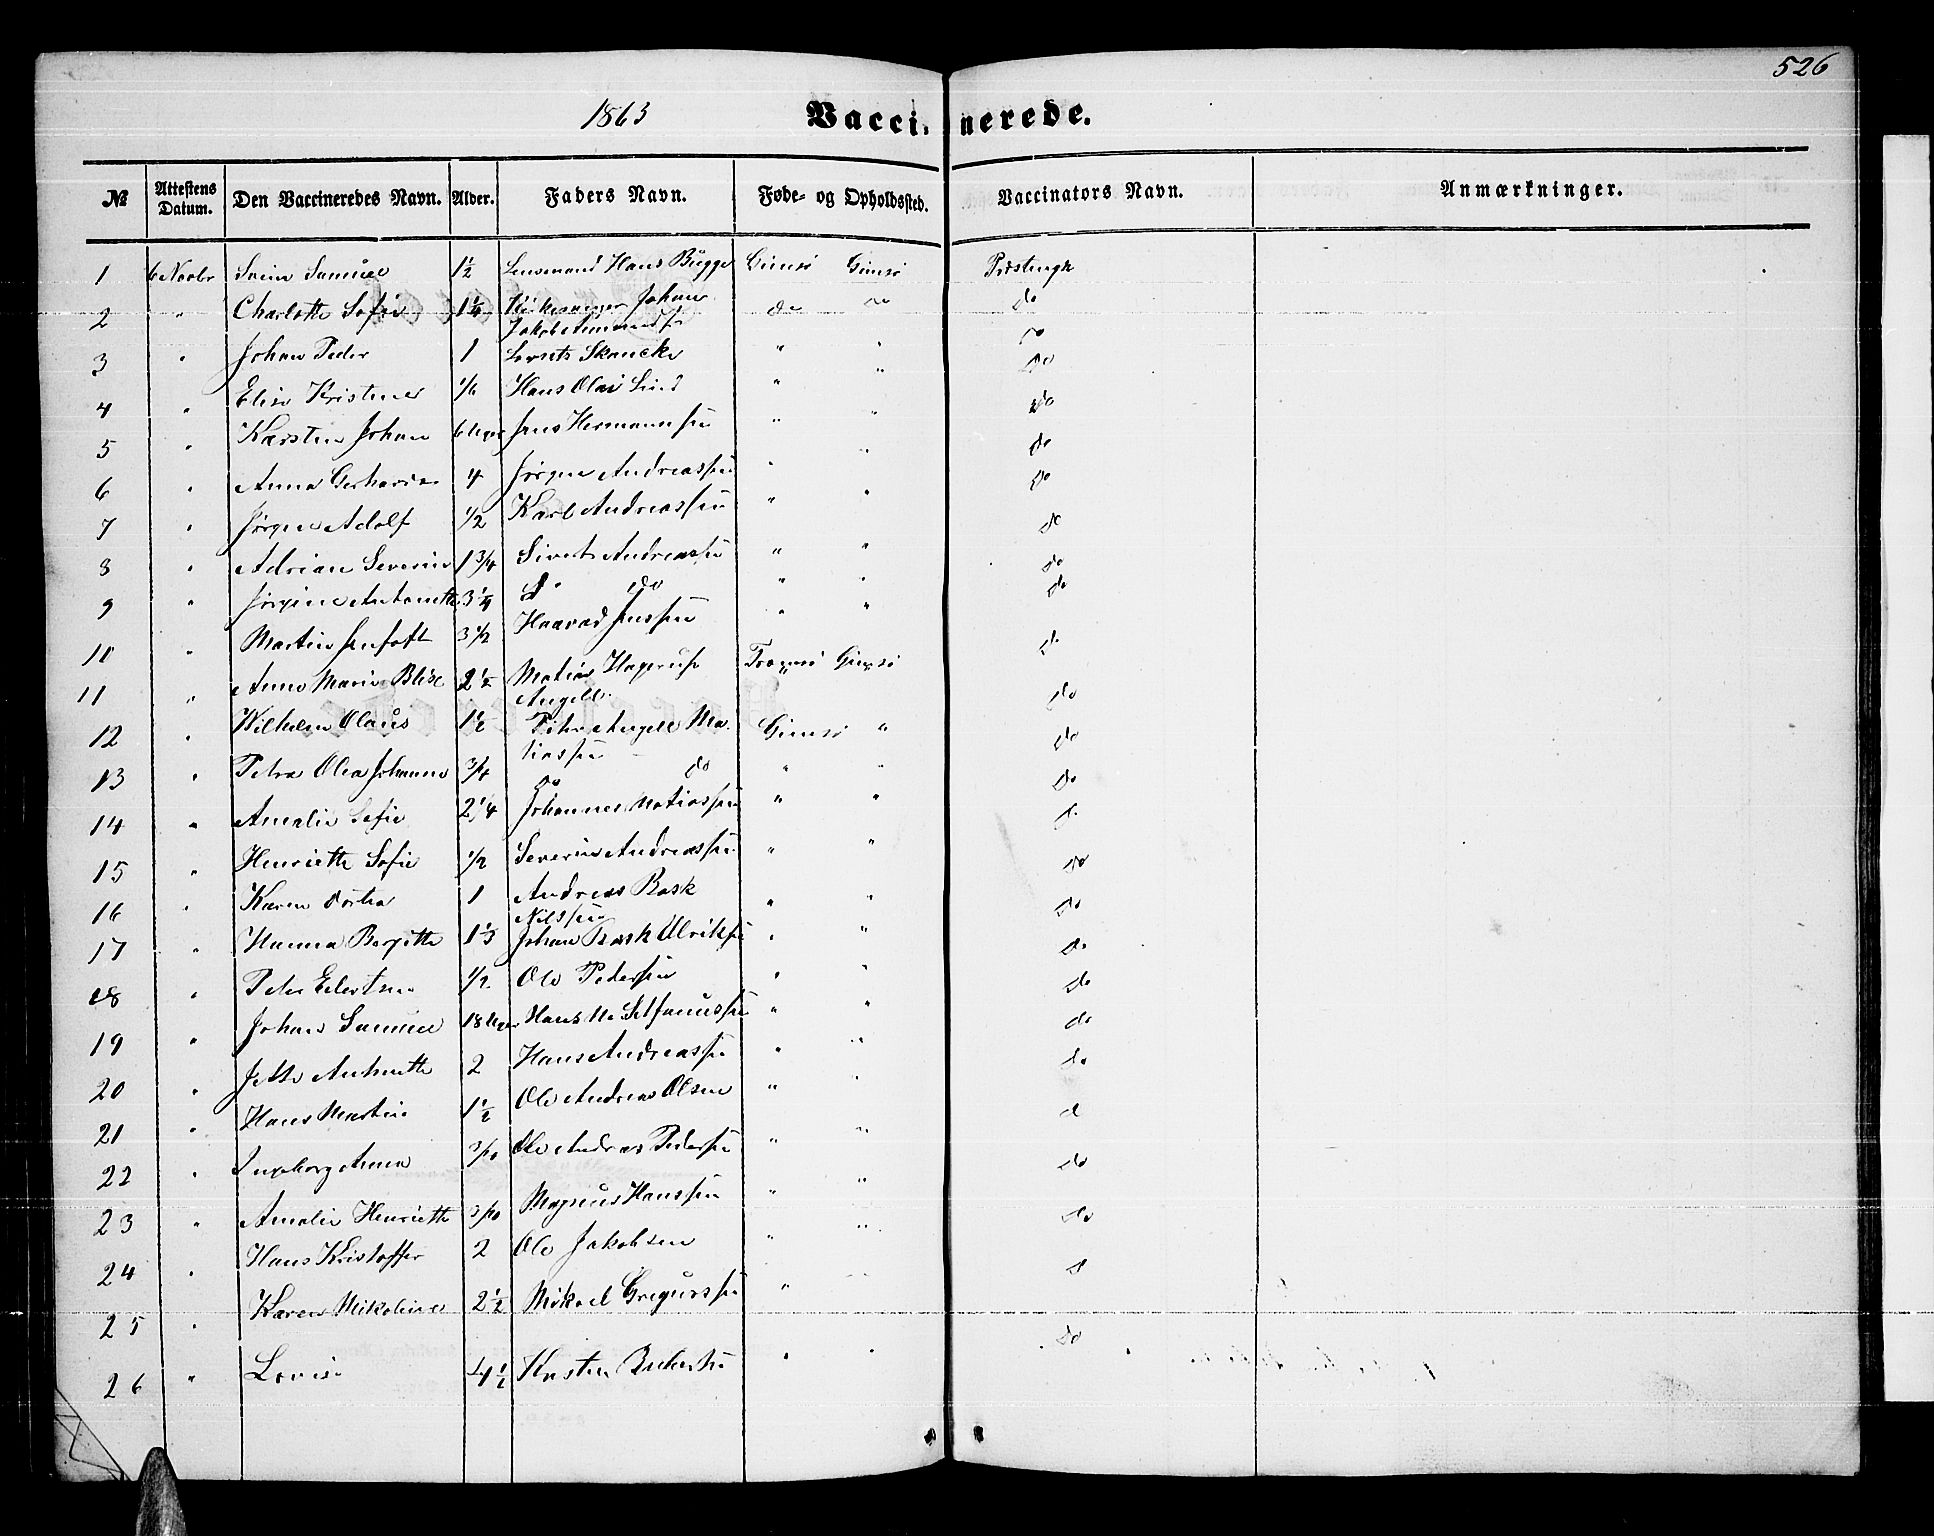 526
1863 Vaccinerede.
№ Attestens Datum. Den Vaccineredes Navn. Alder. Faders Navn. Føde- og Opholdssted. Vaccinators Navn. Anmærkninger.
1 6 Novbr Svein Samuel 1½ Lensmand Hans Bügge Gimsø Gimsø
2 " Charlotte Sofie 1¼ Kirkesanger Johan Jakob do do do
3 " Johan Peder 1 Skancke " " do
4 " Elise Kristine 1/6 Hans Olai Lind " " do
5 " Karsten Johan 6 Uger Jens Hermannsen " " do
6 " Anna 4 Jørgen Andreassen " " do
7 " Jørgen Adolf 1/2 Karl Andreassen " " do
8 " Adrian Severin 1 3/4 Sivert Andreassen " " do
9 " Jørgine Antonette 3¼ do do " " do
10 " Martin 3 1/2 Haavad Jenssen " " do
11 " Anne Marie Elise 2½ Matias Hagerup Angell Tromsø Gimsø do
12 " Wilhelm Olaus 1½ Peter Angell Matiassen Gimsø " do
13 " Petra Olea Johanne 3/4 do do " " do
14 " Amalie Sofie 2 1/4 Johannes Matiassen " " do
15 " Henriette Sofie 1/2 Severin Andreassen " " do
16 " Karen Dortea 1 Andreas Rask Nilssen " " do
17 " Hanna Bergitte 1⅓ Johan Rask Ulriksen " " do
18 " Peter Edertsen 1/2 Ole Pedersen " " do
19 " Johan Samuel 18 Uger Hans " " do
20 " Jette Antonette 2 Hans Andreassen " " do
21 " Hans Martin 1½ Ole Andreas Olsen " " do
22 " Ingeborg Anna 3/10 Ole Andreas Pedersen " " do
23 " Amalie Henriette 3/10 Magnus Hanssen " " do
24 " Hans Kristoffer 2 Ole Jakobsen " "
25 " Karen Mikoline 2½ Mikael Gregussen "
26 " Lovise 4½ " " do